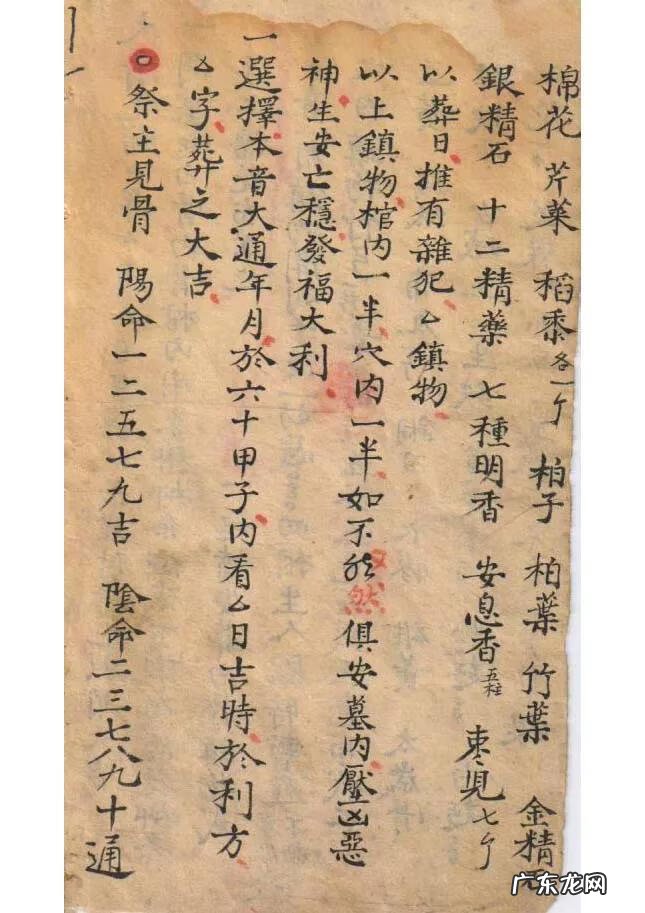 棉花 芹菜 稻黍各一个 柏子 柏葉 竹葉 金精石
銀精石 十二精藥 七種明香 安息香五柱 枣児七个
以葬日推有雜犯厶鎮物
以上鎮物棺内一半穴内一半如不然俱安墓内壓凶惡
神生安亡穩發福大利
一選擇本音大通年月於六十甲子内看厶日吉時於利方
厶字葬之大吉
祭主見骨 陽命一二五七九吉 陰命二三七八九十通
广东龙网